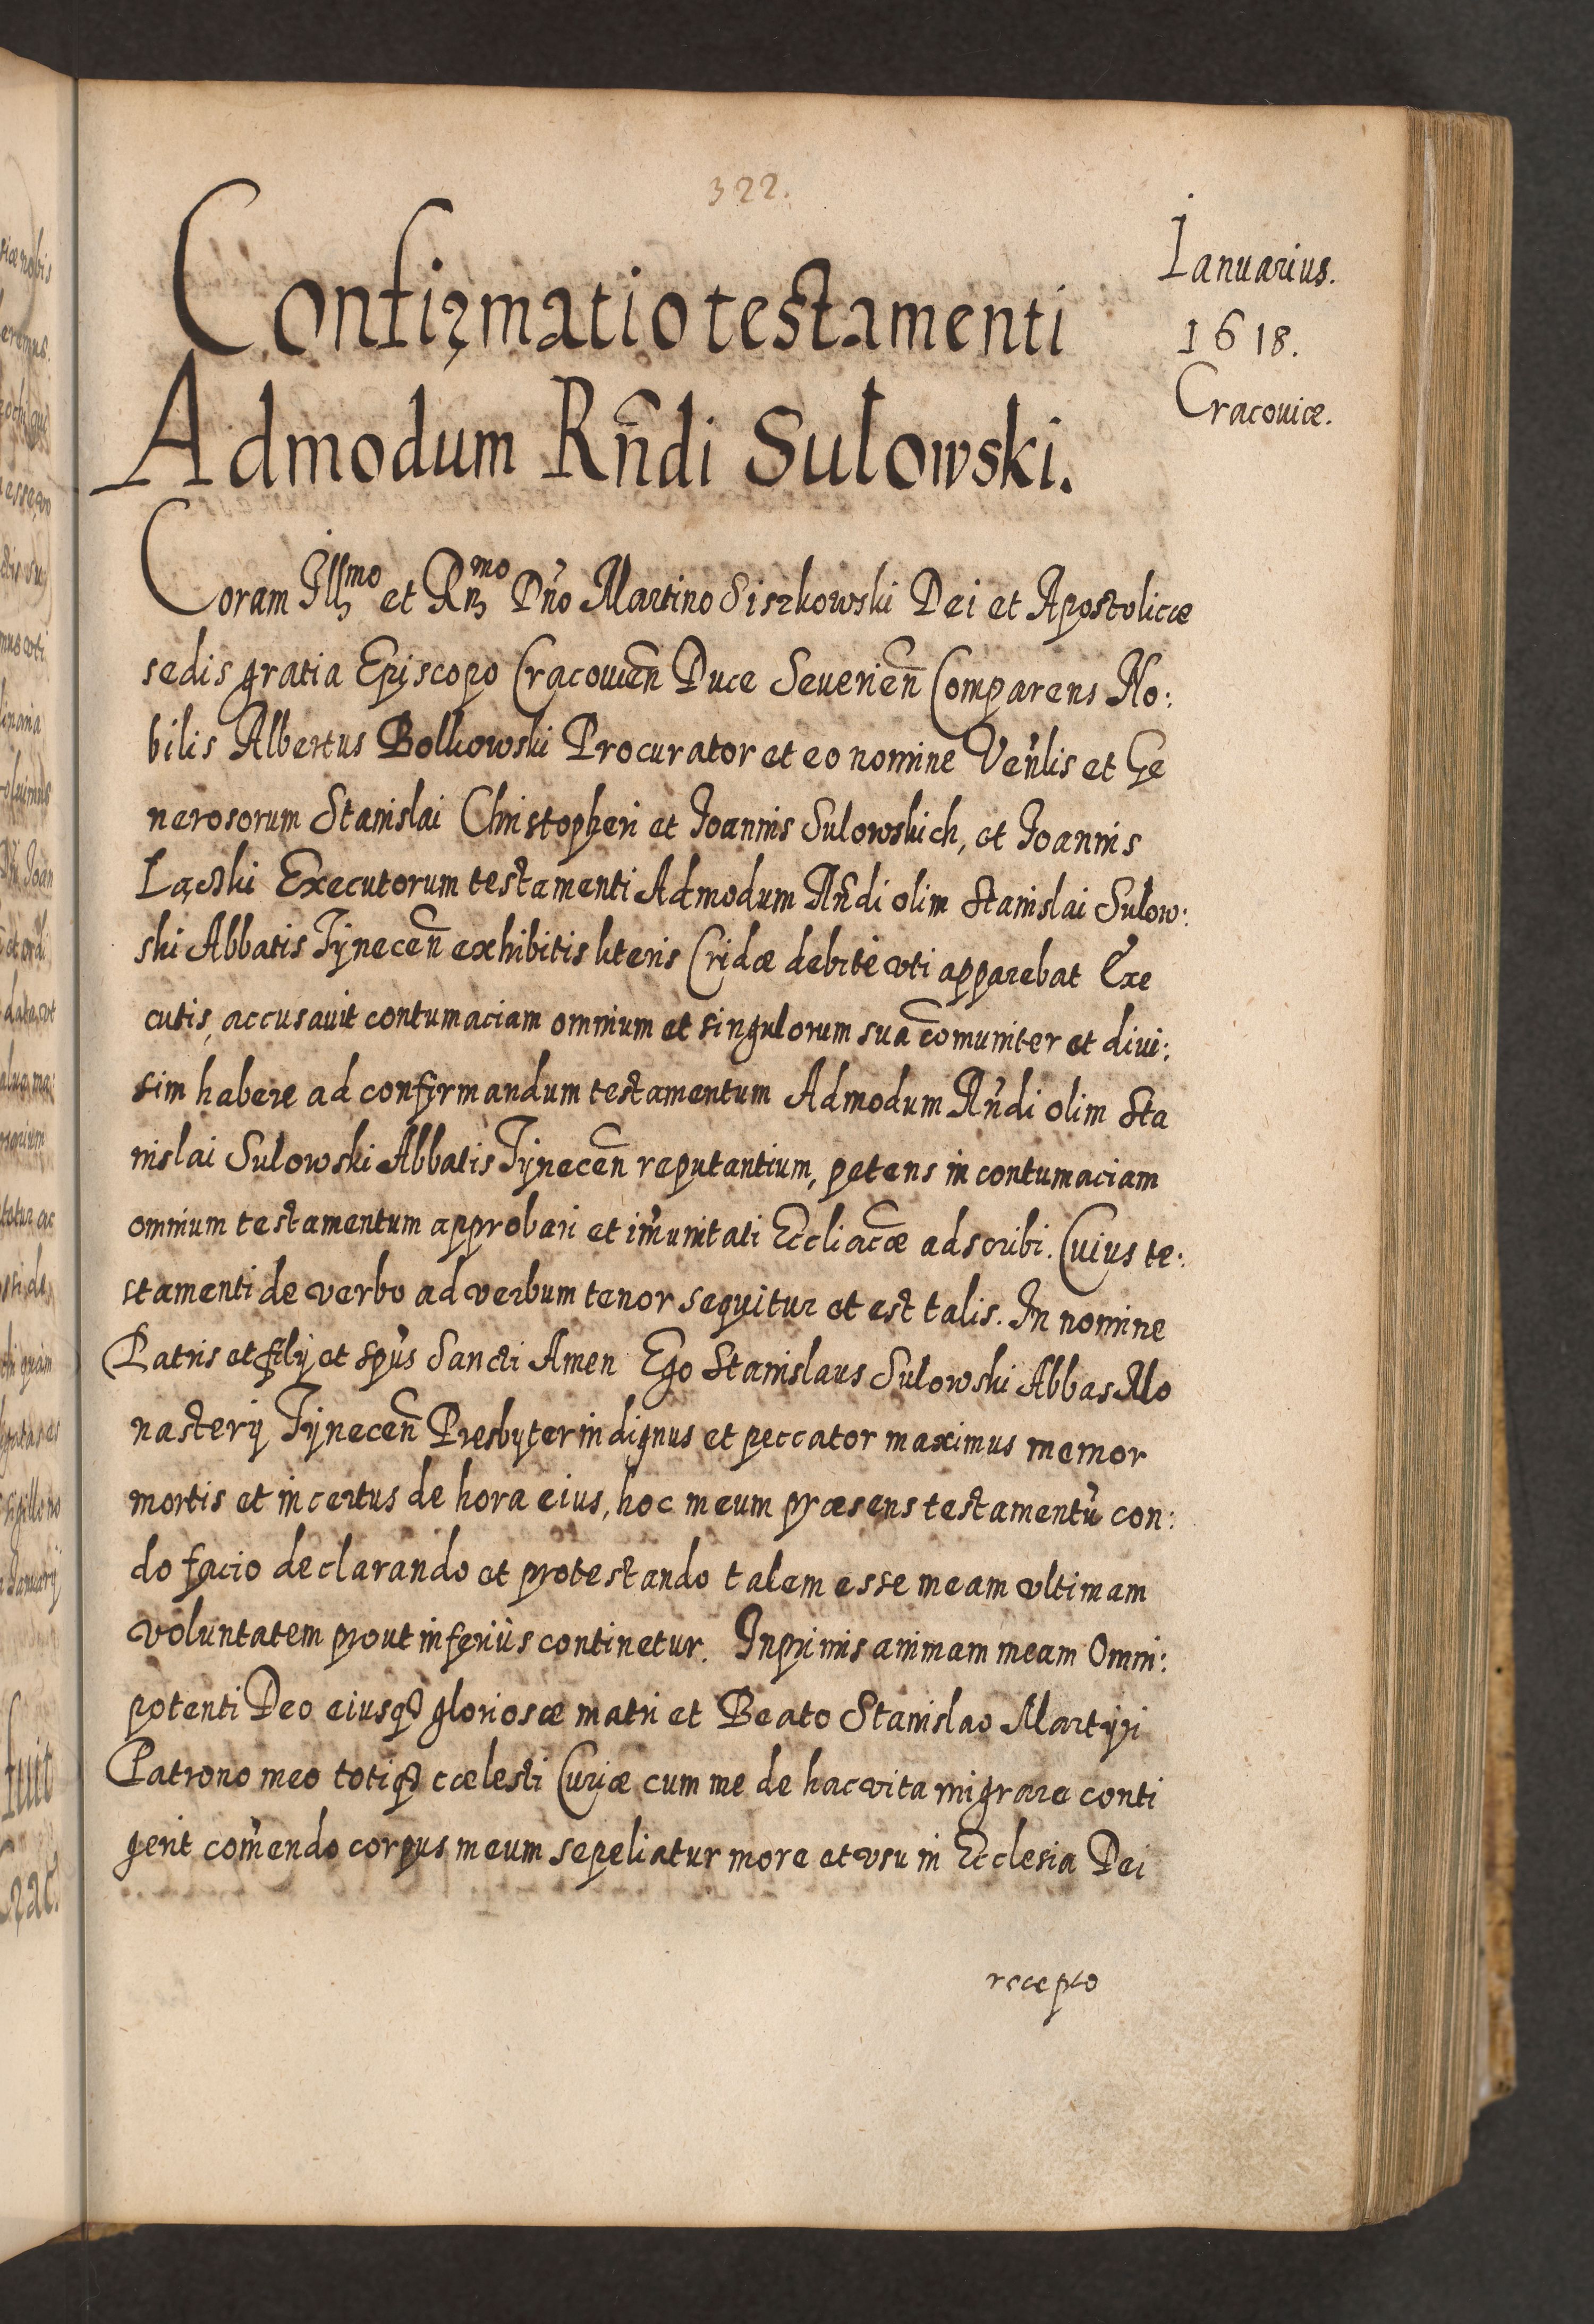 322.
Ianuarius.
1618.
Cracouiæ.
Confirmatio testamenti
Admodum Rñdi Sulowski.
Coram Illmo et Rmo Dño Martino Siszkowski Dei et Apostolicæ
sedis gratia Episcopo Cracouieñ Duce Seuerieñ Comparens No:
bilis Albertus Bolkowski Procurator et eo nomine Veñlis et Ge
nerosorum Stanislai Christopheri et Joannis Sulowskich, et Joannis
Executorum testamenti Admodum Rñdi olim Stanislai Sulow:
ski Abbatis Tÿneceñ exhibitis literis Cridæ debitè vti apparebat Exe
cutis, accusauit contumaciam omnium et singulorum sua com̃uniter et diui:
sim habere ad confirmandum testamentum Admodum Rñdi olim Sta
nislai Sulowski Abbatis Tÿneceñ reputantium, petens in contumaciam
omnium testamentum approbari et im̃unitati Eccliacæ adscribi. Cuius te:
stamenti de verbo ad verbum tenor sequitur et est talis. In nomine
Patris et filÿ et spũs Sancti Amen Ego Stanislaus Sulowski Abbas Mo
nasterÿ Tÿneceñ Presbÿter indignus et peccator maximus memor
mortis et incertus de hora eius, hoc meum præsens testamentũ con:
do facio declarando et protestando talem esse meam vltimam
voluntatem prout inferiùs continetur. Inprimis animam meam Omni:
potenti Deo eiusq3 gloriosæ matri et Beato Stanislao Martÿri
Patrono meo totiq3 cœlesti Curiæ cum me de hac vita migrare conti
gerit com̃endo corpus meum sepeliatur more et vsu in Ecclesia Dei
recepto